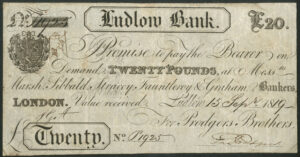 No 11925 Ludlow Bank. £20.
I Promise to pay the Bearer on
Demand TWENTY POUNDS, at Messrs
Marsh, Sibbald, Stracey, Fauntleroy & Graham, Bankers
LONDON. Value received Ludlow 15 Sept 1819
For Prodgers & Brothers,
£ Twenty. No 11925